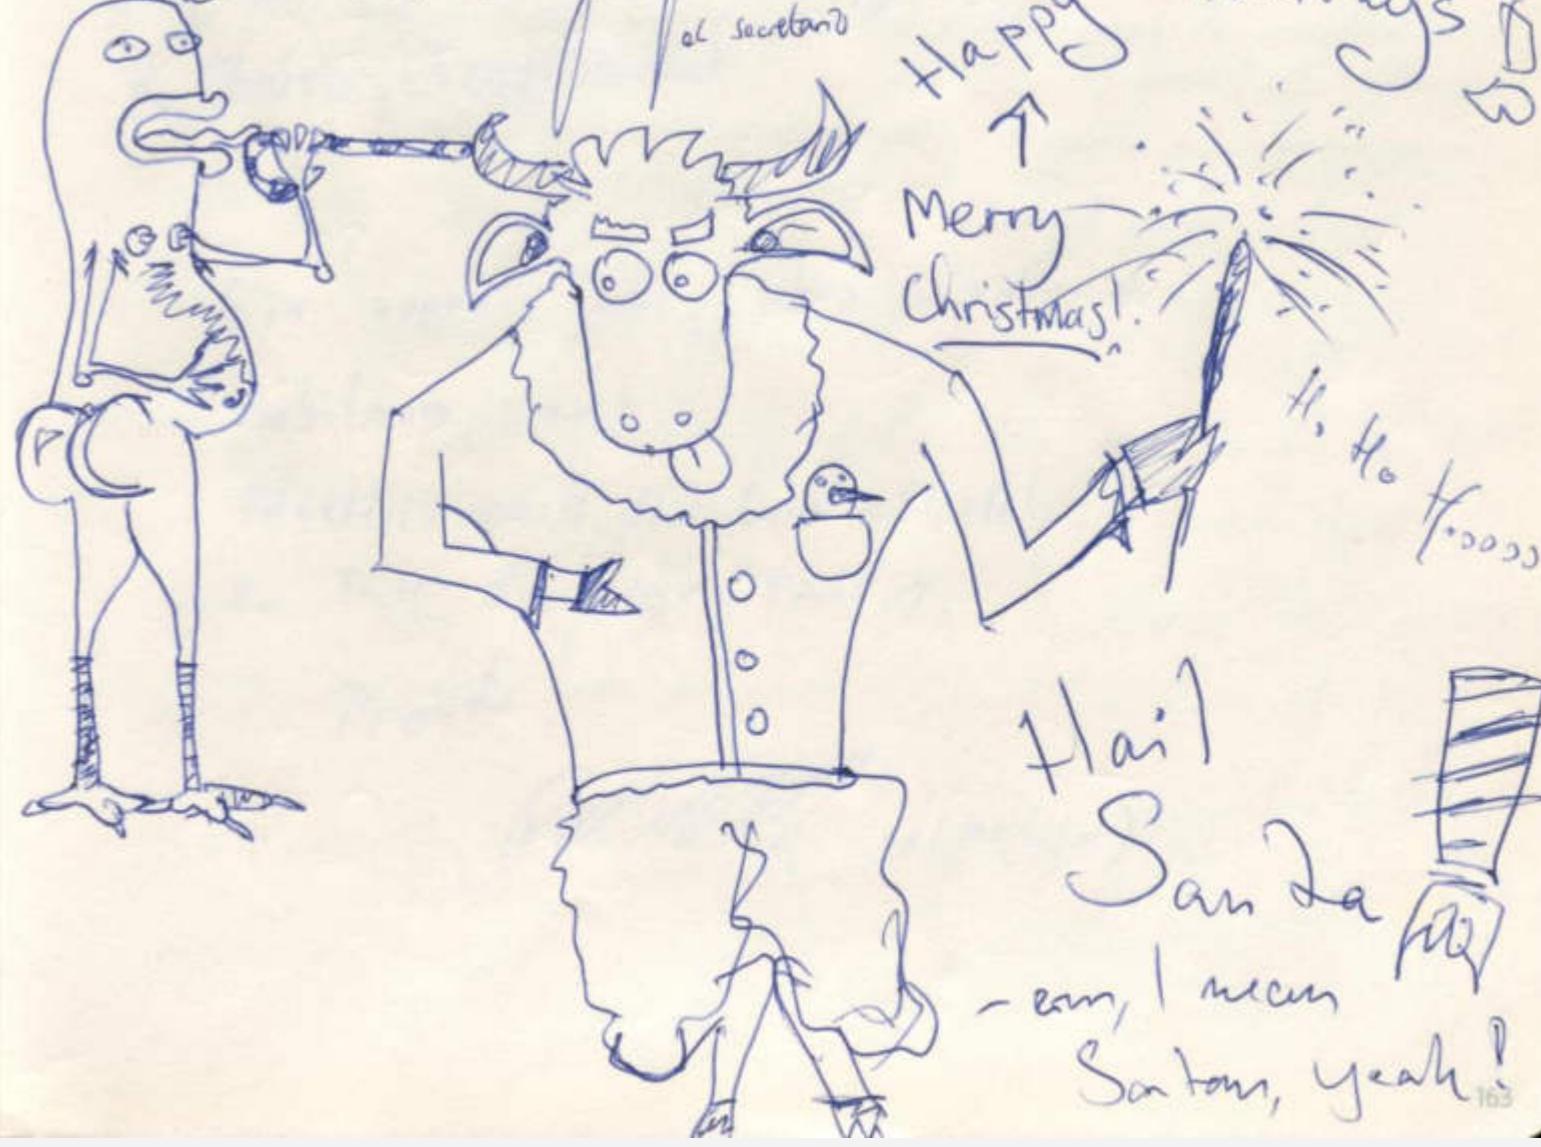 el secretario
Happy
Merry
Christmas!
H, Ho H.....
Hail
Santa
- erm, I mean
Satan, yeah!
163